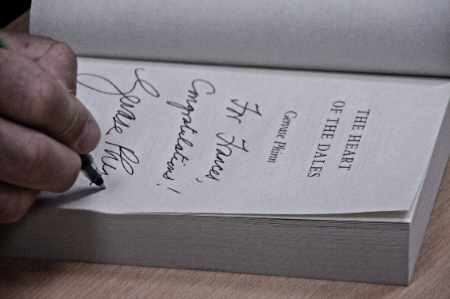 THE HEART
OF THE DALES
Gervase Phinn
For Frances,
Congratulations!
Gervase Phinn